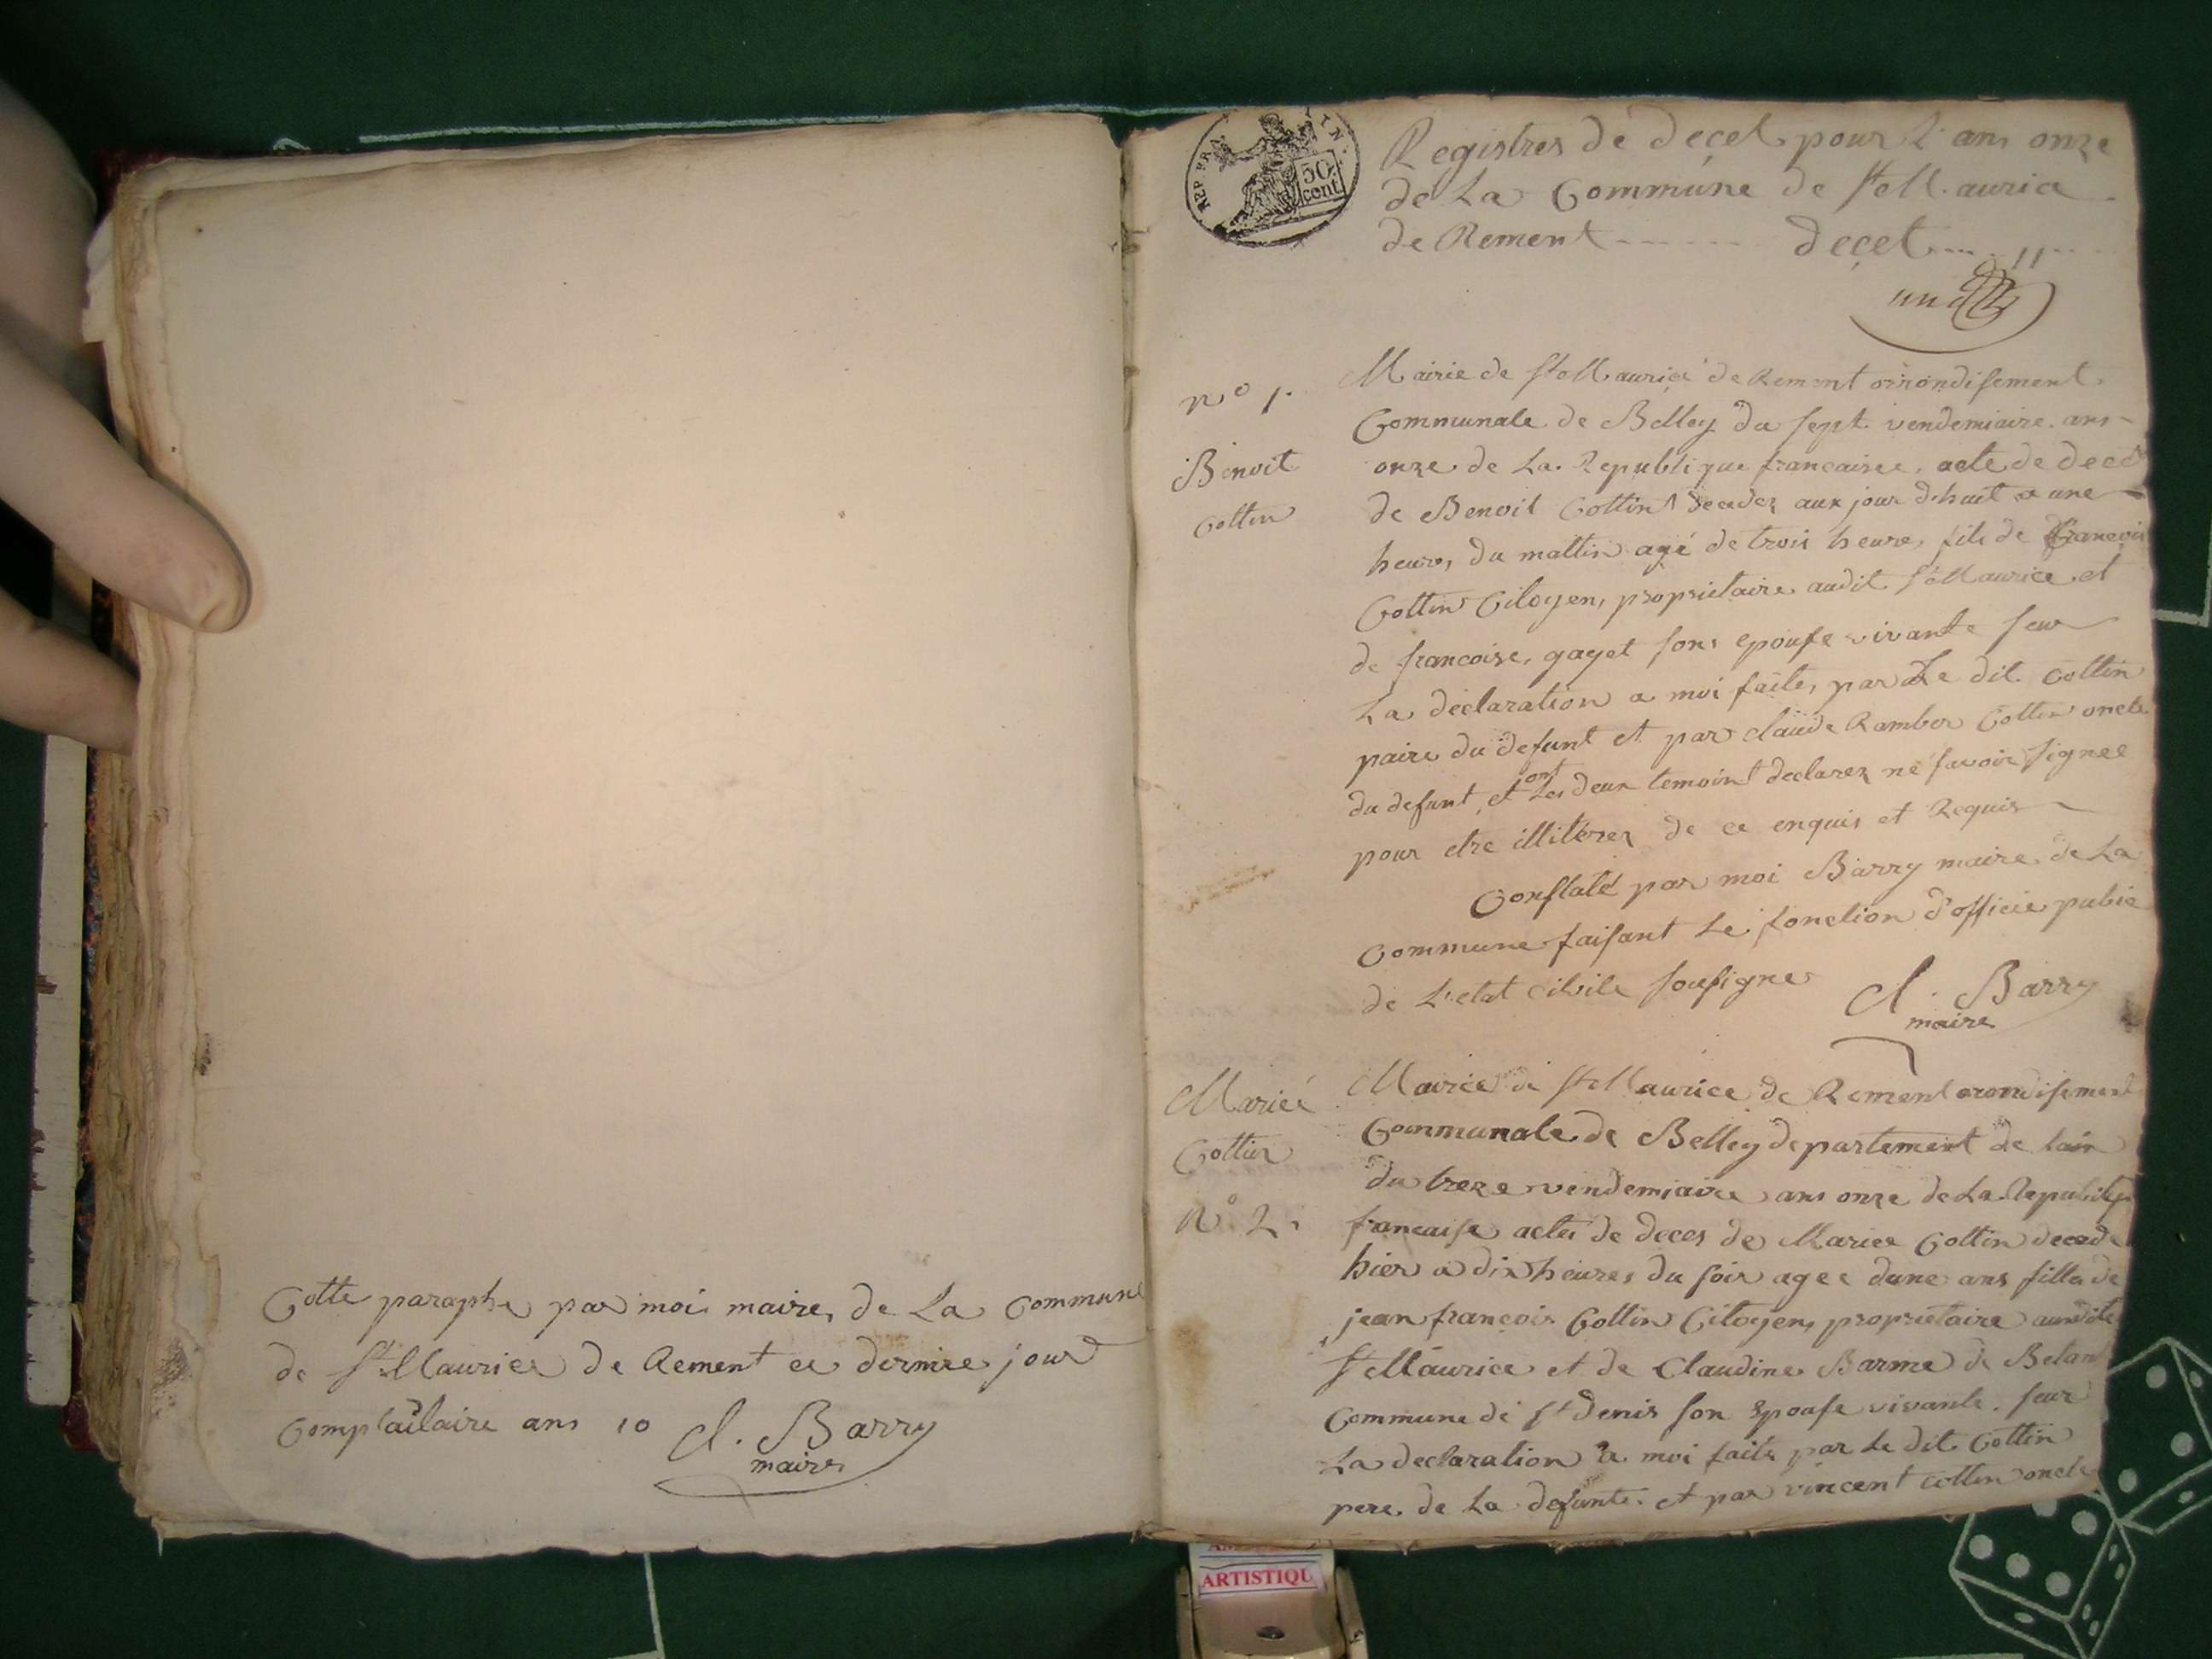 Cotte paraphe par moi maire de La Commune
de St Maurice de Rement ce dernire jour
Complaitaire ans 10 Cl. Barry
maire
REP. FRA
50
cent
Registres de deçet pour l'ans onze
de La Commune de St Maurice
de Rement ------ deçet ... 11
un
no 1.
Benoit
Cottin
Mairie de St Maurice de Rement orrondisement
Communale de Belley du sept vendemiaire ans
onze de La Republique francaisee, acte de deces
de Benoit Cottin decedez aux jour d'huit a une
heure du mattin agé de trois heure, fils de francois
Cottin Citoyen, proprietaire audit St Maurice et
de francoise gayet sons epouse vivante seur
La declaration a moi faite, par Le dit Cottin
paire du defunt et par claude Ramber Cottin oncle
du defunt, et ont Les deux temoint declarez ne savoir signee
pour etre illiterez de ce enquis et Requis
Constaté par moi Barry maire de La
Commune faisant Le fonction d'officie public
de L'etat Civile sousigne Cl. Barry
maire
Mariee
Cottin
No 2.
Mairie de St Maurice de Rement orondisement
Communale de Belley departement de Lain
du treze vendemiaire ans onze de La Republiq
francaise actes de deces de Mariee Cottin decede
hier a dix heures du soir agee dune ans fille de
jean françois Cottin Citoyen, propriétaire aundite
St Maurice et de Claudine Barme de Belan
Commune de St denis son Epouse vivante. seur
La declaration a moi faite par Le dit Cottin
pere de La defunte et par vincent cottin oncle
ARTISTIQU